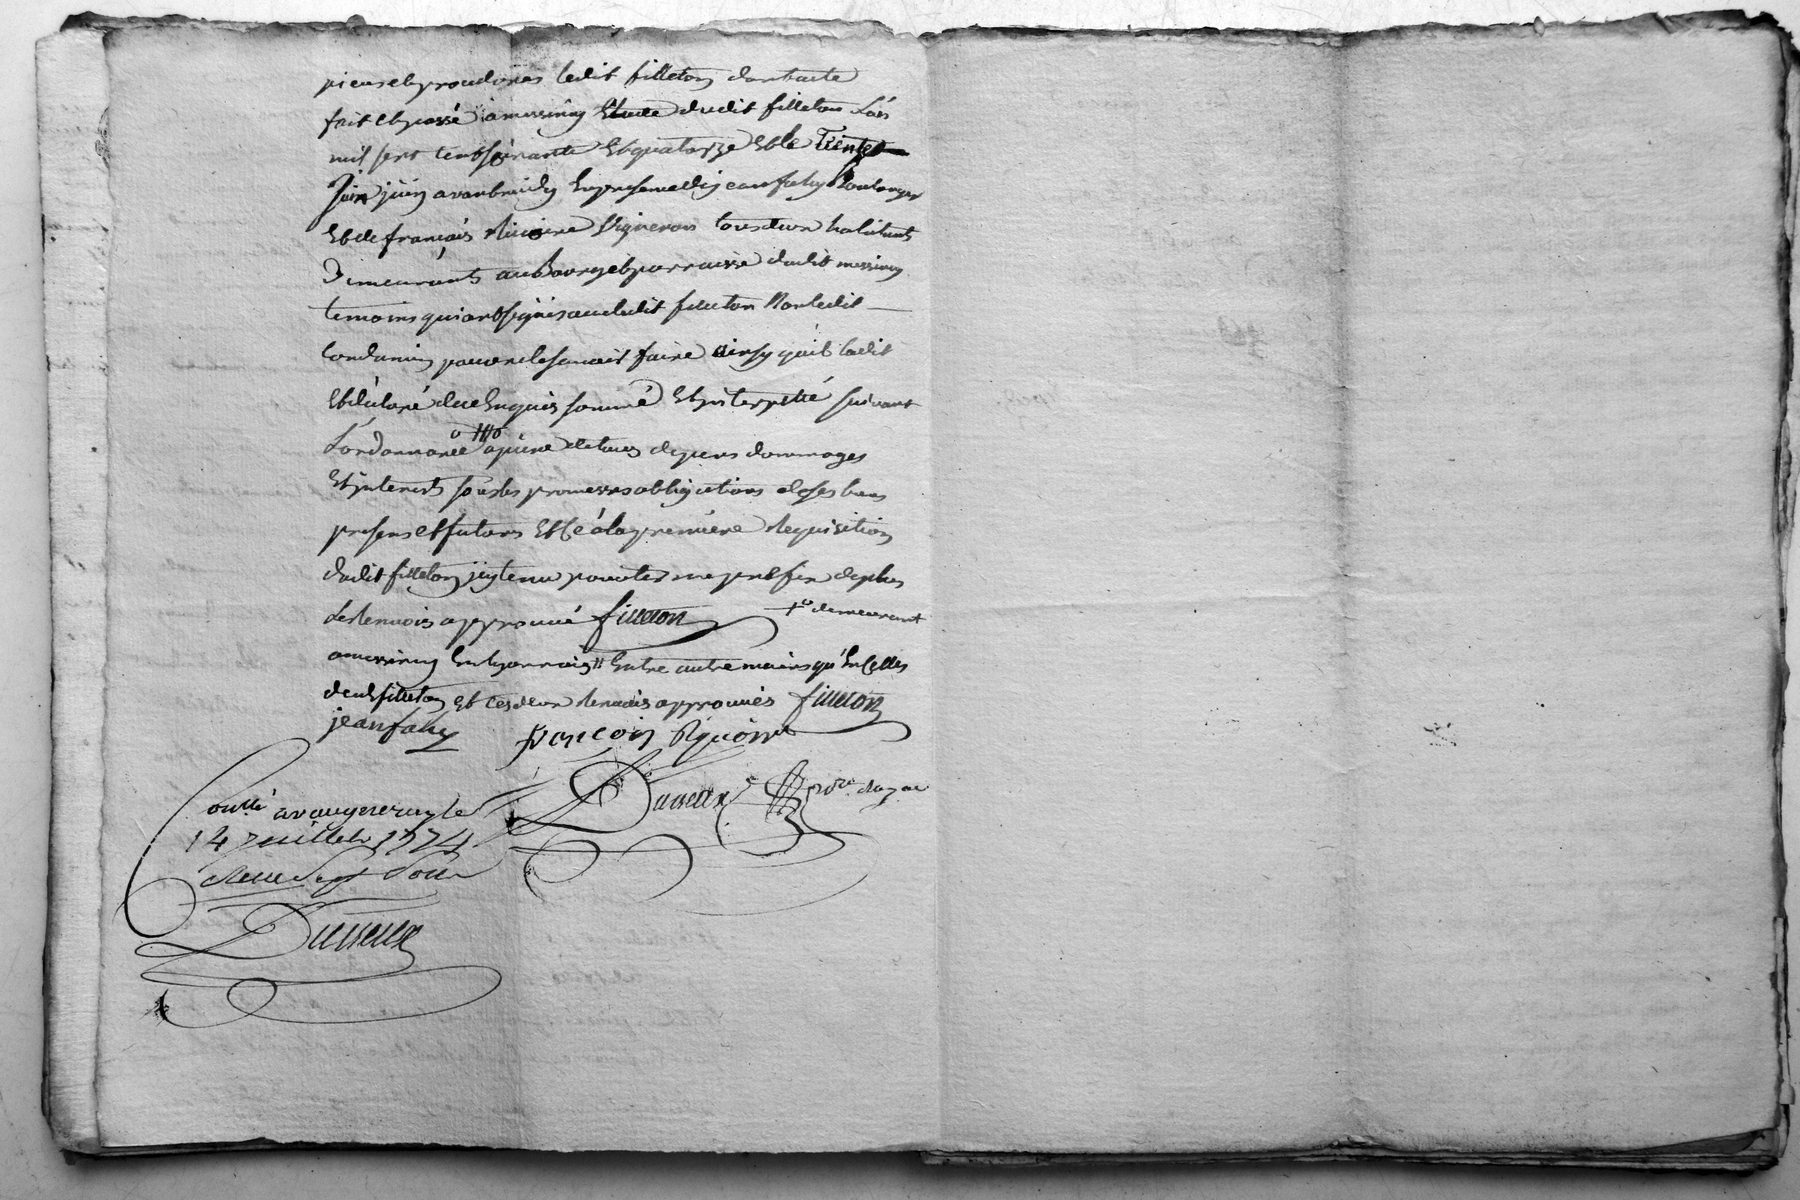 ledit filleton dont acte
fait et passé a messimy Etude dudit filleton L'an
mil sept cent soixante Et quatorze Et le Trente
Juin juin avant midy En presence de jean fahy Boulanger
Et de françois Vigneron tous deux habitants
Demeurants au Bourg et parroisse dudit messimy
temoins qui ont signés avec ledit filleton Non ledit
pour ne le scavoir faire ainsy quil la dit
Et déclaré de ce Enquis sommé Et interpellé suivant
L'ordonnance a peine de tous depens dommages
Et interests sous les promesses obligations de ses biens
presens et futurs Et ce a la premiere Requisition
dudit filleton de plus
Le Renvois approuvé filleton + demeurant
a messimy En lyonnois # Entre autre mains qu'En Celles
dud filleton Et ces deux Renvois approuvés filleton
jean fahy françois
Dusseux
Conllé a vaugneray le
14 juillet 1774
Reçu sept sols
Dusseux